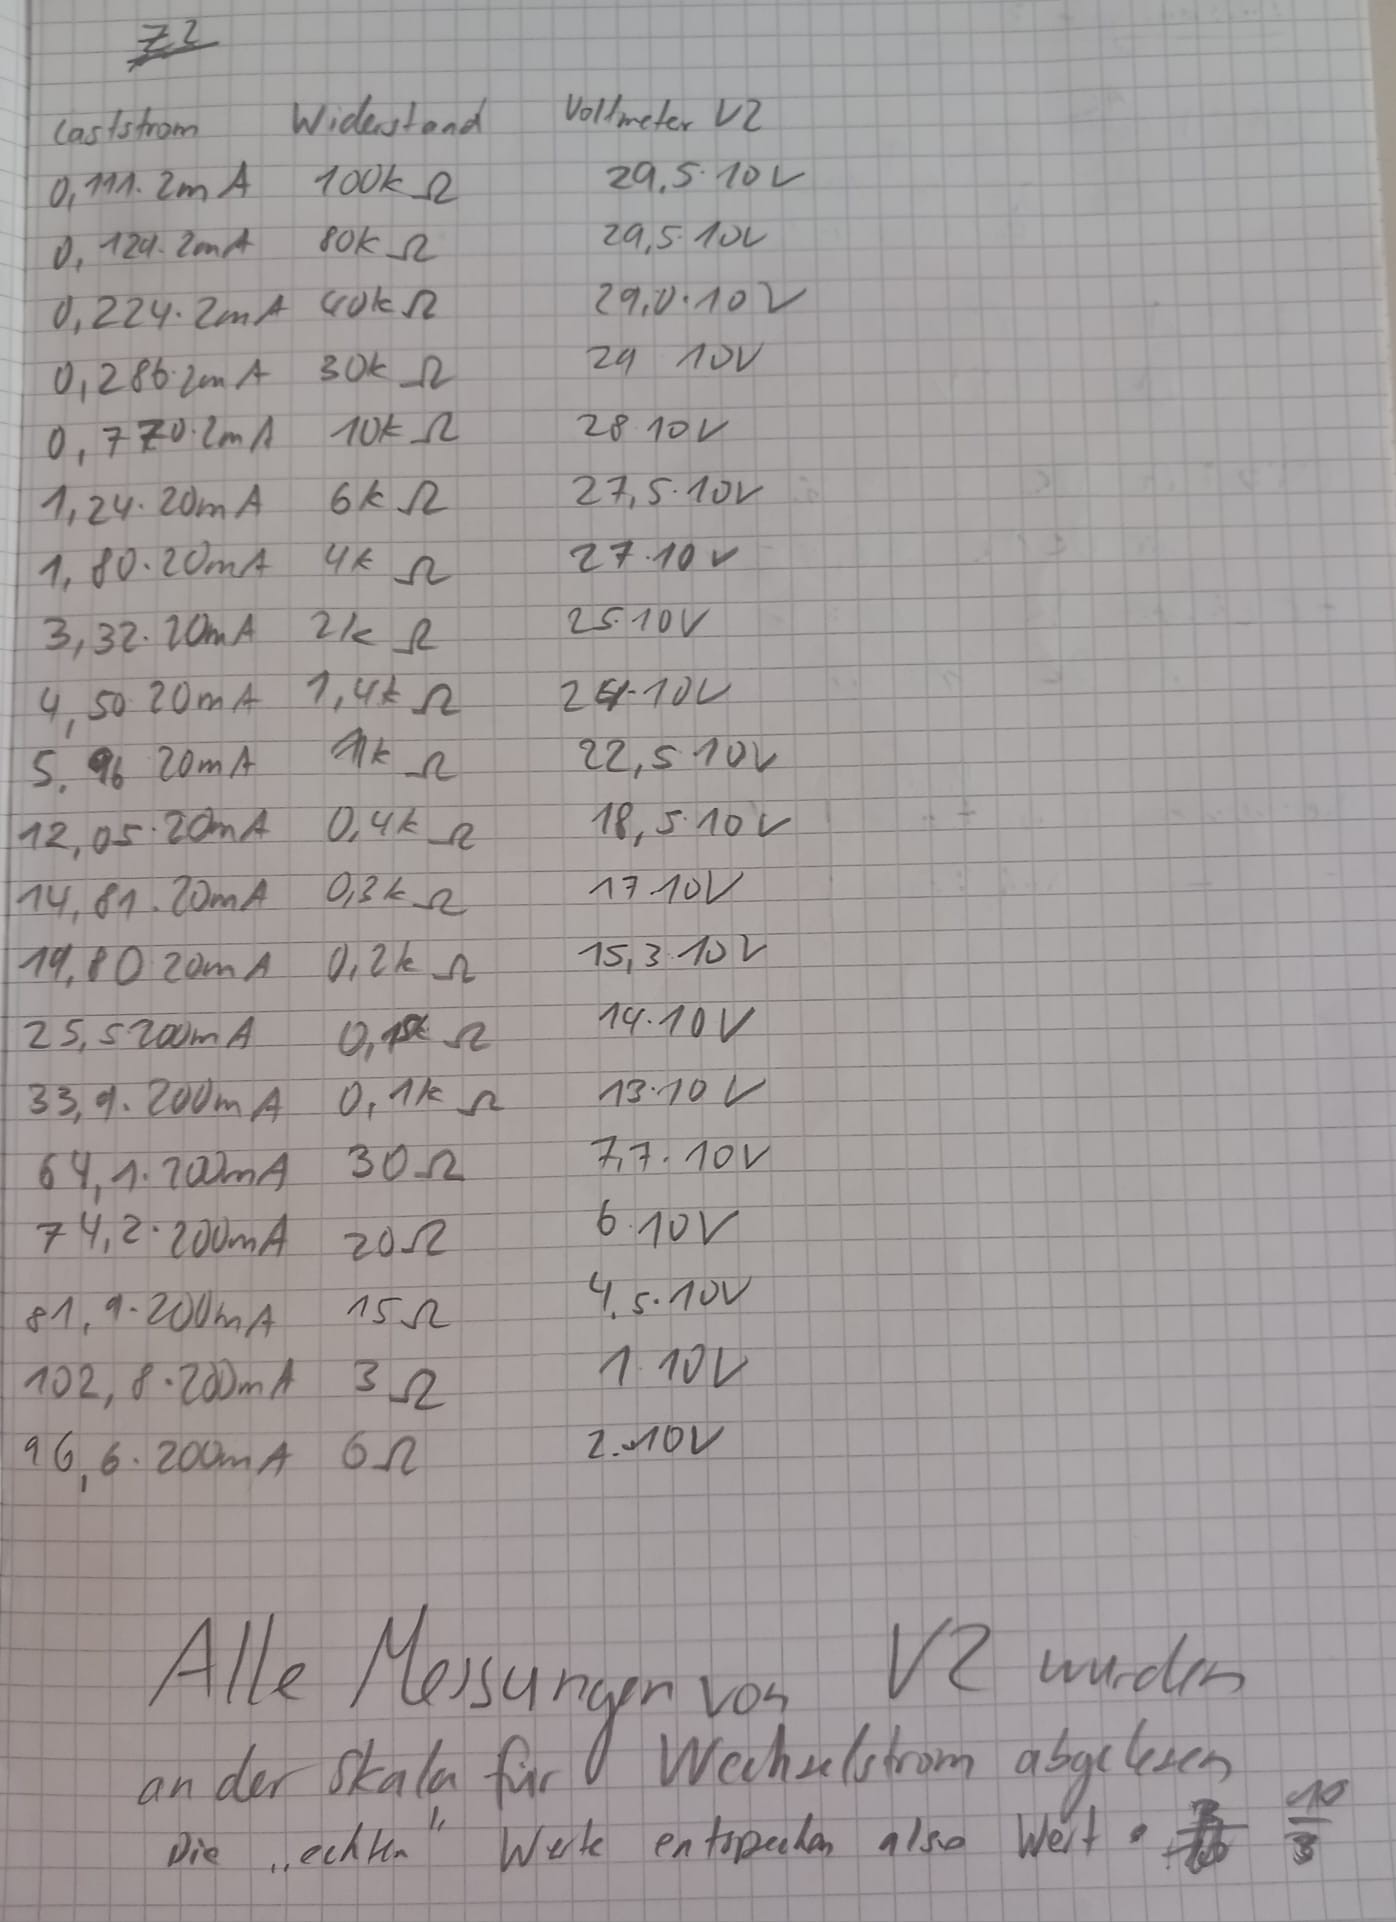 Z2
Laststrom Widerstand Voltmeter V2
0,111·2mA 100kΩ 29,5·10V
0,129·2mA 80kΩ 29,5·10V
0,224·2mA 40kΩ 29,0·10V
0,286·2mA 30kΩ 29 10V
0,770·2mA 10kΩ 28·10V
1,24·20mA 6kΩ 27,5·10V
1,80·20mA 4kΩ 27·10V
3,32·20mA 2kΩ 25·10V
4,50·20mA 1,4kΩ 24·10V
5,96 20mA 1kΩ 22,5·10V
12,05·20mA 0,4kΩ 18,5·10V
14,81·20mA 0,3kΩ 17·10V
19,80 20mA 0,2kΩ 15,3·10V
25,5 200mA Ω 14·10V
33,9·200mA 0,1kΩ 13·10V
64,1·200mA 30Ω 7,7·10V
74,2·200mA 20Ω 6·10V
81,9·200mA 15Ω 4,5·10V
102,8·200mA 3Ω 1·10V
96,6·200mA 6Ω 2·10V
Alle Messungen von V2 wurden
an der Skala für Wechselstrom abgelesen
Die „echten" Werte entsprechen also Wert · 10/3